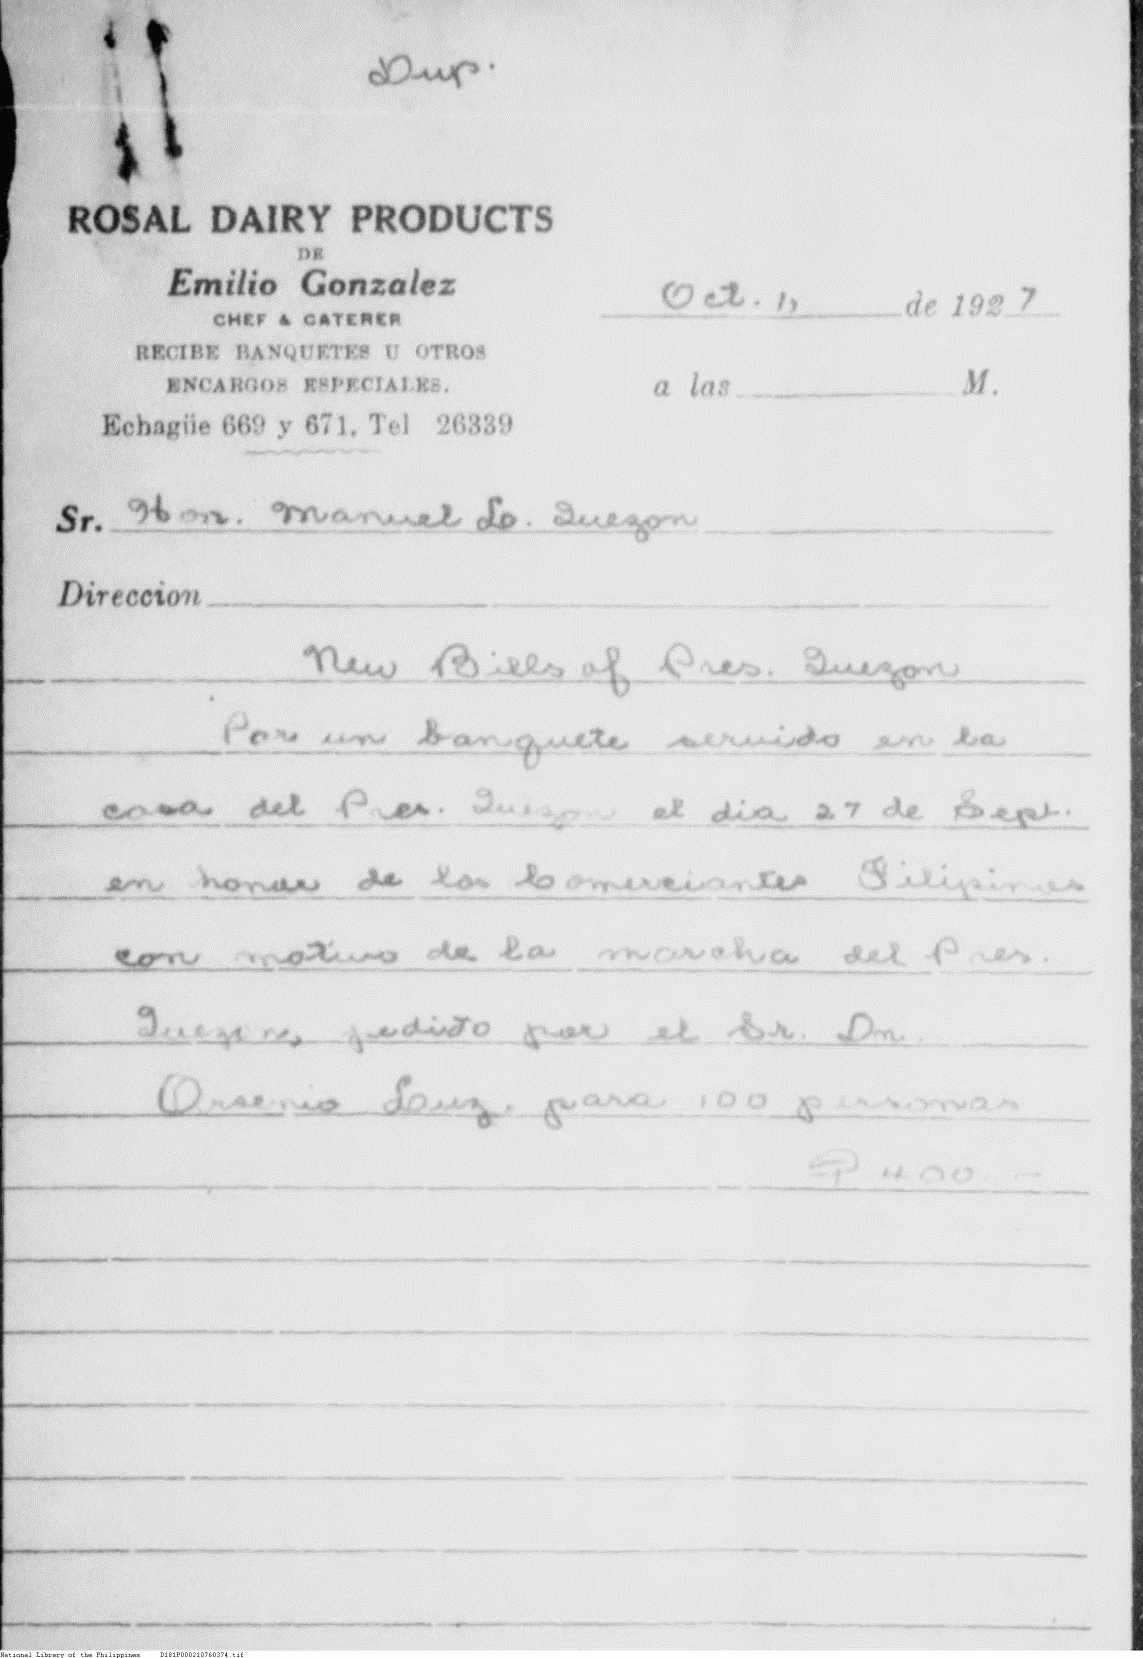 Dup.
ROSAL DAIRY PRODUCTS
DE
Emilio Gonzalez
CHEF & CATERER
RECIBE BANQUETES U OTROS
ENCARGOS ESPECIALES.
Echagüe 669 y 671, Tel 26339
Oct. 1, de 1927
a las M.
Sr. Hon. Manuel L. Quezon
Direccion
New Bills of Pres. Quezon
Por un banquete servido en la
casa del Pres. Quezon el dia 27 de Sept.
en honor de los Comerciantes Filipinos
con motivo de la marcha del Pres.
Quezon, pedido por el Sr. Dn.
Arsenio Luz, para 100 personas
₱ 400.-
National Library of the Philippines D181P000210760374.tif